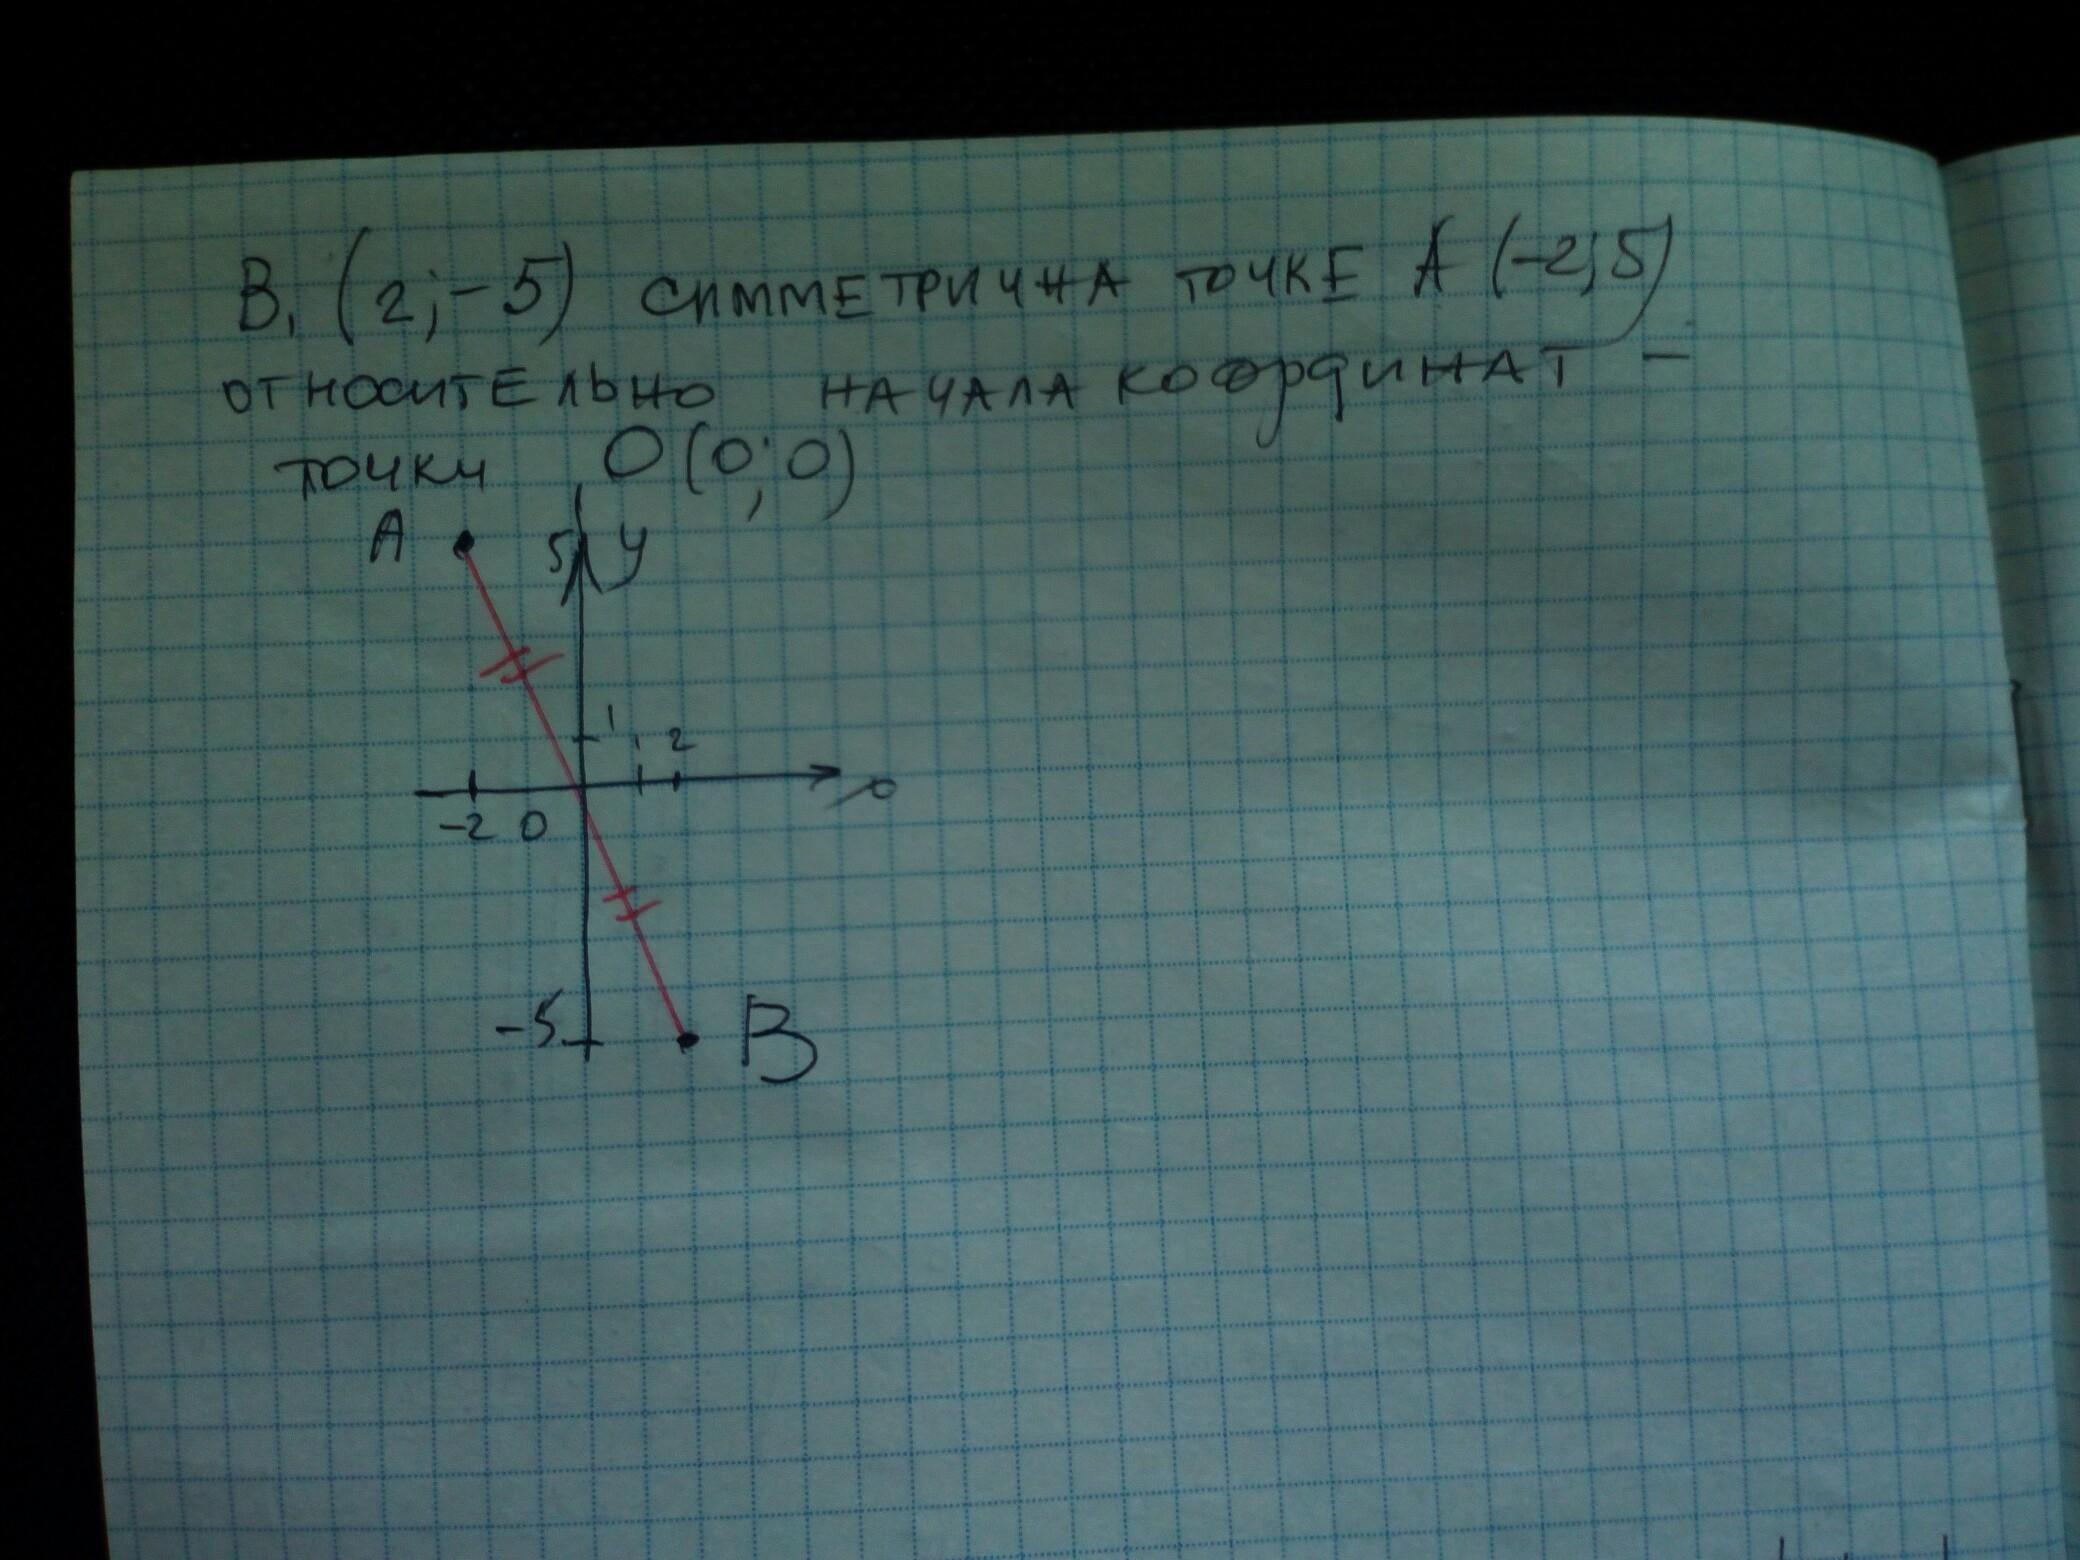 B, (2; -5) симметрична точке A (-2; 5)
относительно начала координат -
точки O (0; 0)
A 5 y
1
1 2
-2 0
-5 B